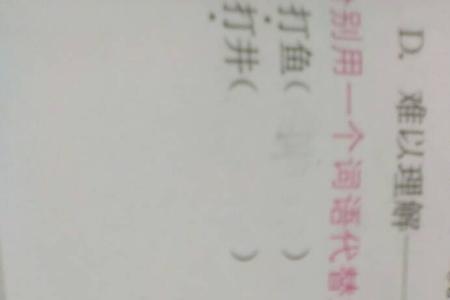 D. 难以理解
别用一个词语代替
打鱼( )
打井( )